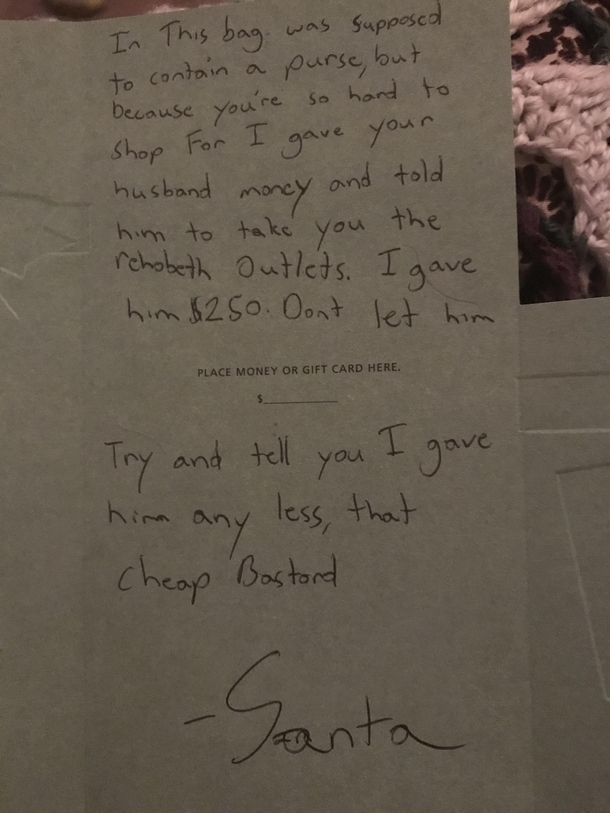 In This bag was supposed
to contain a purse, but
because you're so hard to
shop For I gave your
husband money and told
him to take you the
rehobeth Outlets. I gave
him $250. Dont let him
PLACE MONEY OR GIFT CARD HERE.
$__________
Try and tell you I gave
him any less, that
Cheap Bastard
-Santa